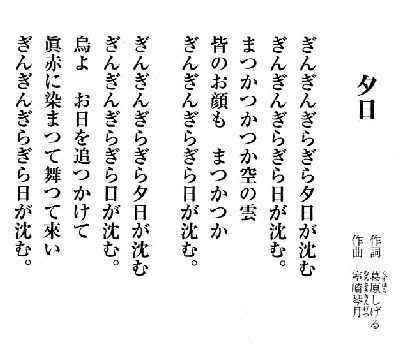 夕日
作詞 葛原しげる
作曲 室崎琴月
ぎんぎんぎらぎら夕日が沈む
ぎんぎんぎらぎら日が沈む。
まつかつかつか空の雲
皆のお顔も まつかつか
ぎんぎんぎらぎら日が沈む。
ぎんぎんぎらぎら夕日が沈む
ぎんぎんぎらぎら日が沈む。
烏よ お日を追つかけて
眞赤に染まつて舞つて來い
ぎんぎんぎらぎら日が沈む。